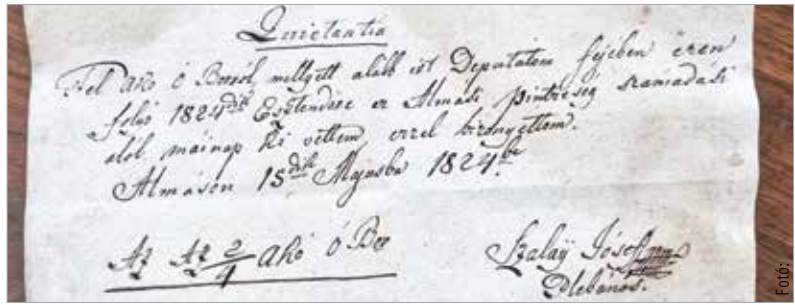 Quietantia
Fel Akó Ó Borról mellyett alább irt Deputatom fejében ezen
folyó 1824dik Esztendőre az Almási pintzeség számadási
alól máinap ki vettem ezzel bizonyittom.
Almáson 15dik Májusba 1824be
Az Az 2/4 Akó ó Bor
Szalaÿ Jósef
Plébános.
Fotó: